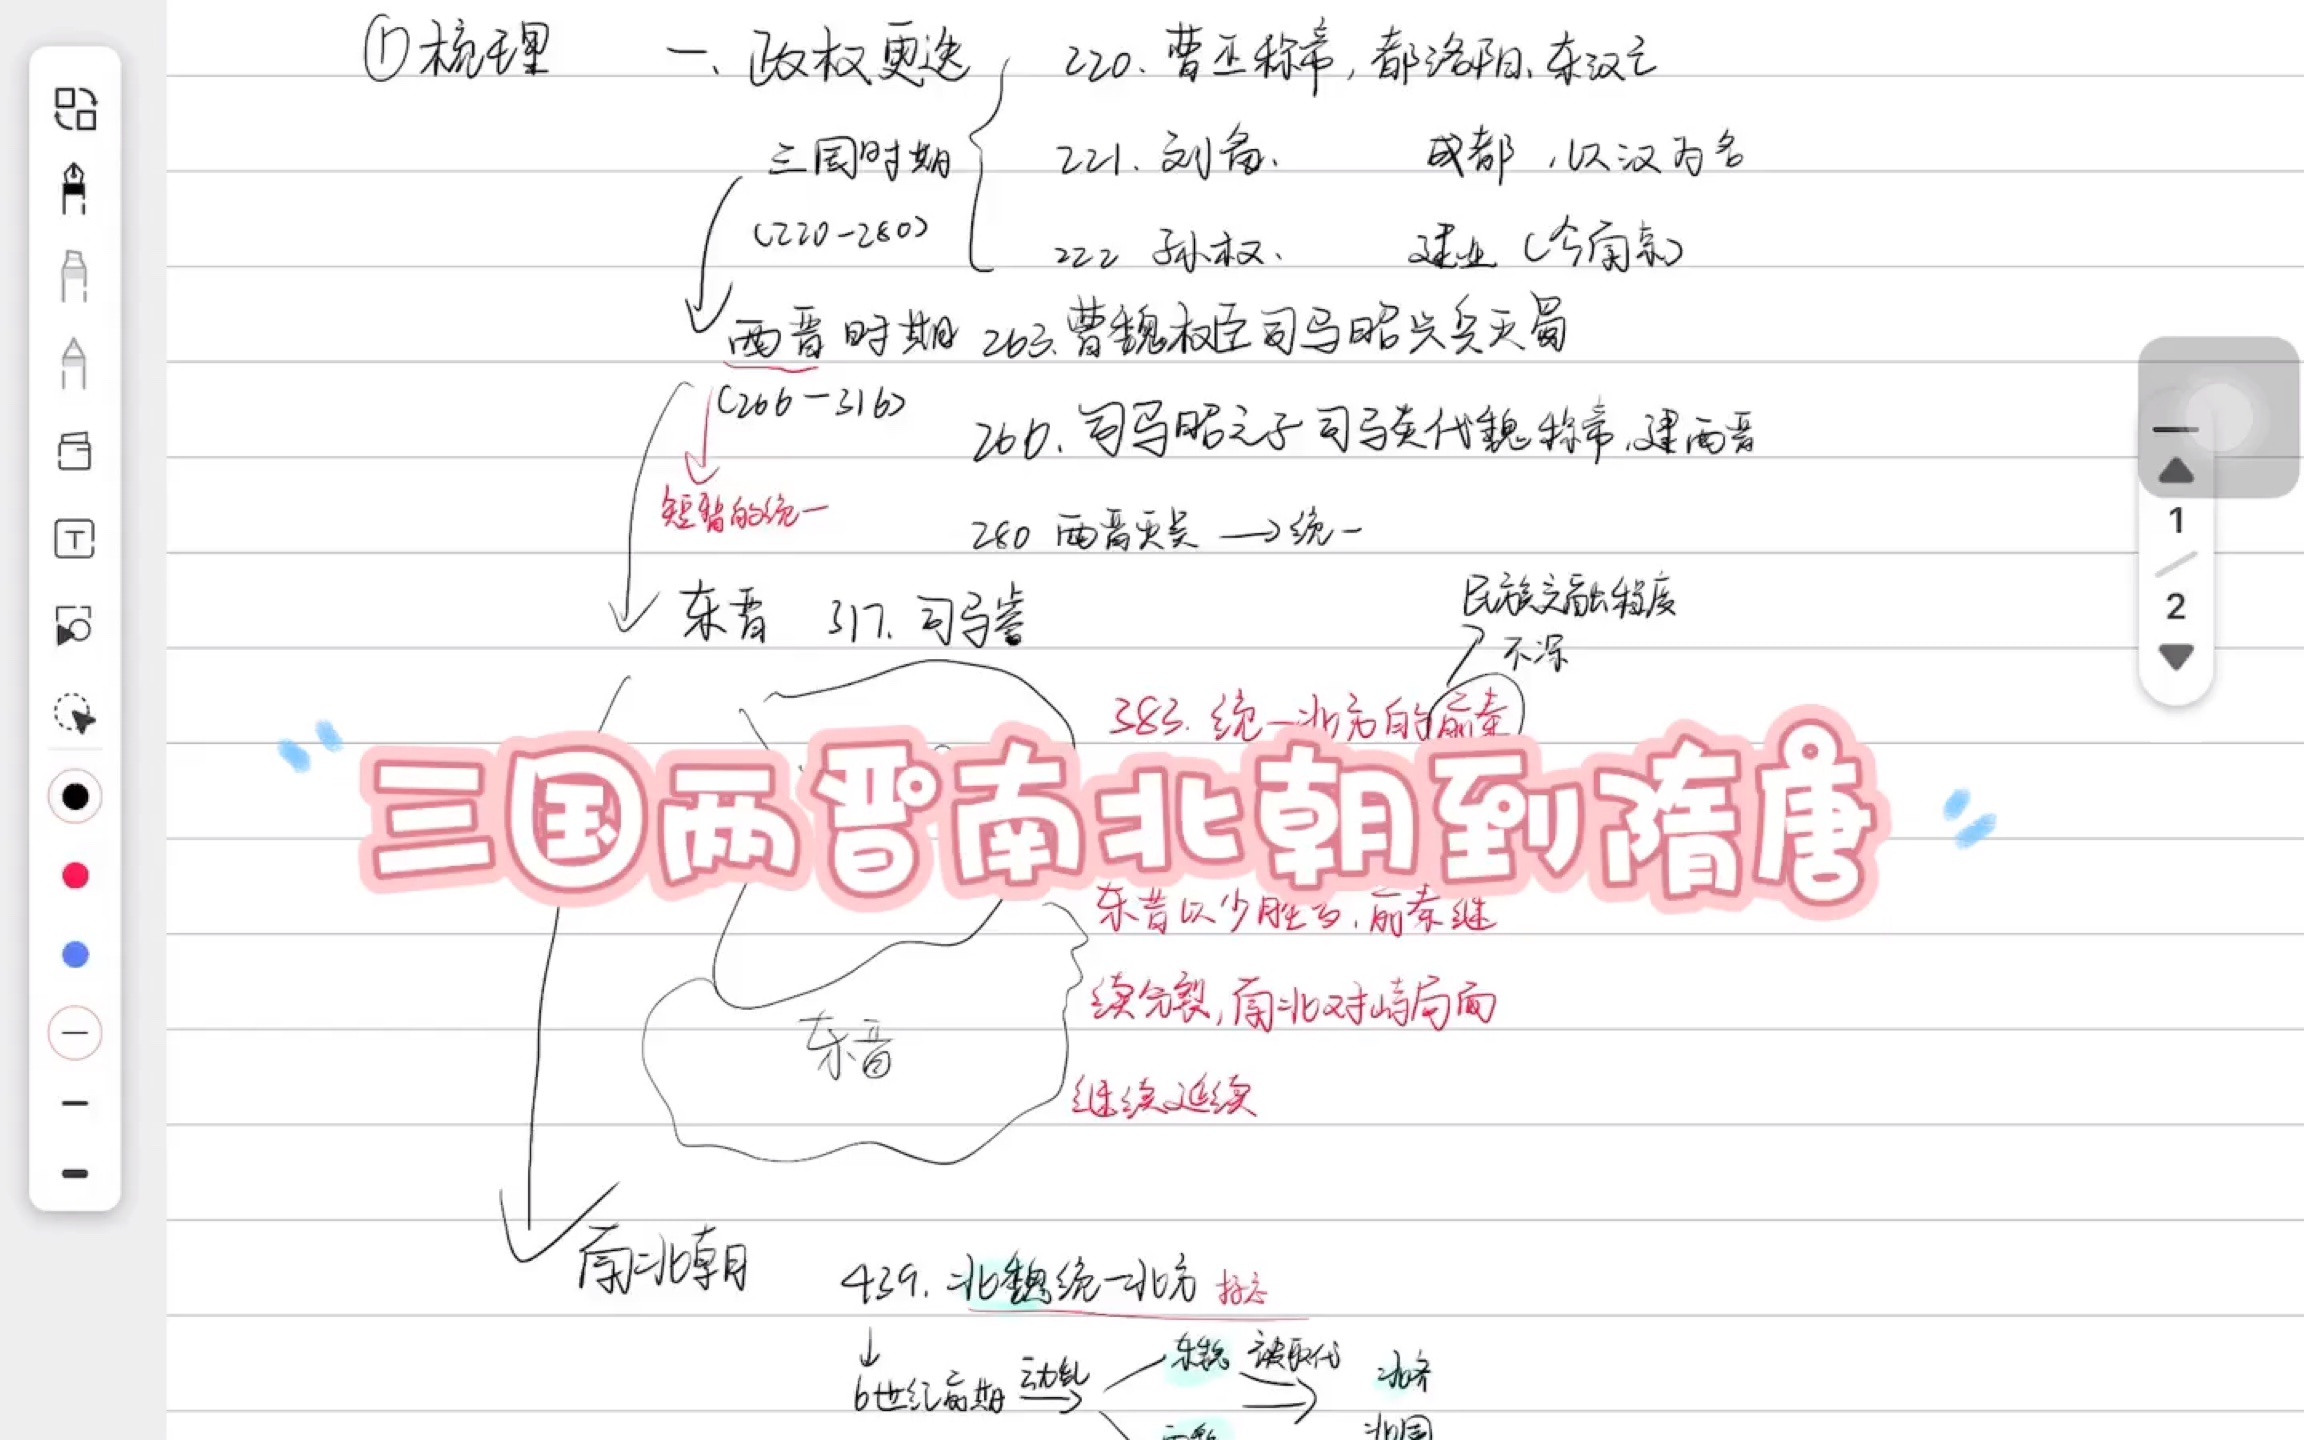 ①梳理 一、政权更迭
220. 曹丕称帝,都洛阳、东汉亡
三国时期 221. 刘备、 成都,以汉为名
(220-280)
222 孙权、 建业(今南京)
西晋时期 263.曹魏权臣司马昭兴兵灭蜀
(266-316)
266.司马昭之子司马炎代魏称帝,建西晋
短暂的统一
280 西晋灭吴→统一
东晋 317.司马睿
民族交融程度
不深
383. 统一北方的前秦
三国两晋南北朝到隋唐
东晋以少胜多,前秦继
续分裂,南北对峙局面
东晋
继续延续
南北朝 439.北魏统一北方
↓
6世纪前期 动乱 东魏 被取代 北齐
西魏 北周
T
1
2